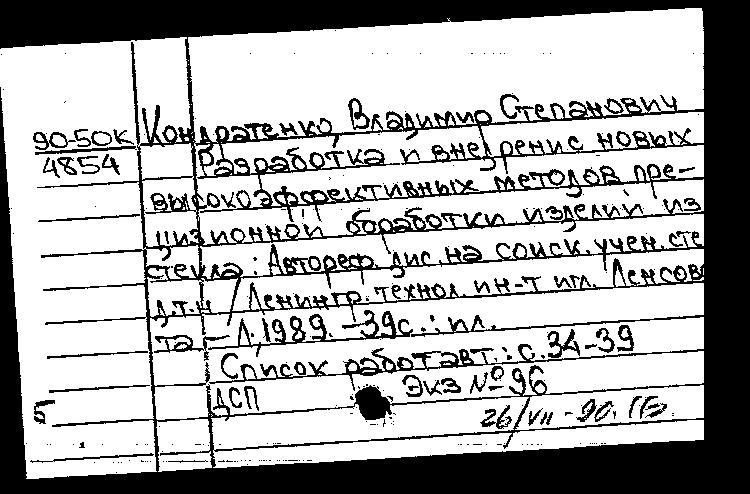 90-50К Кондратенко, Владимир Степанович
4854 Разработка и внедрение новых
высокоэффективных методов пре-
цизионной обработки изделий из
стекла: Автореф. дис. на соиск. учен. сте
д.т.н / Ленингр. технол. ин-т им. Ленсове
та. – Л., 1989. – 39с.: ил.
Список работ авт.: с. 34-39
ДСП Экз № 96
Б 26/VII - 90.